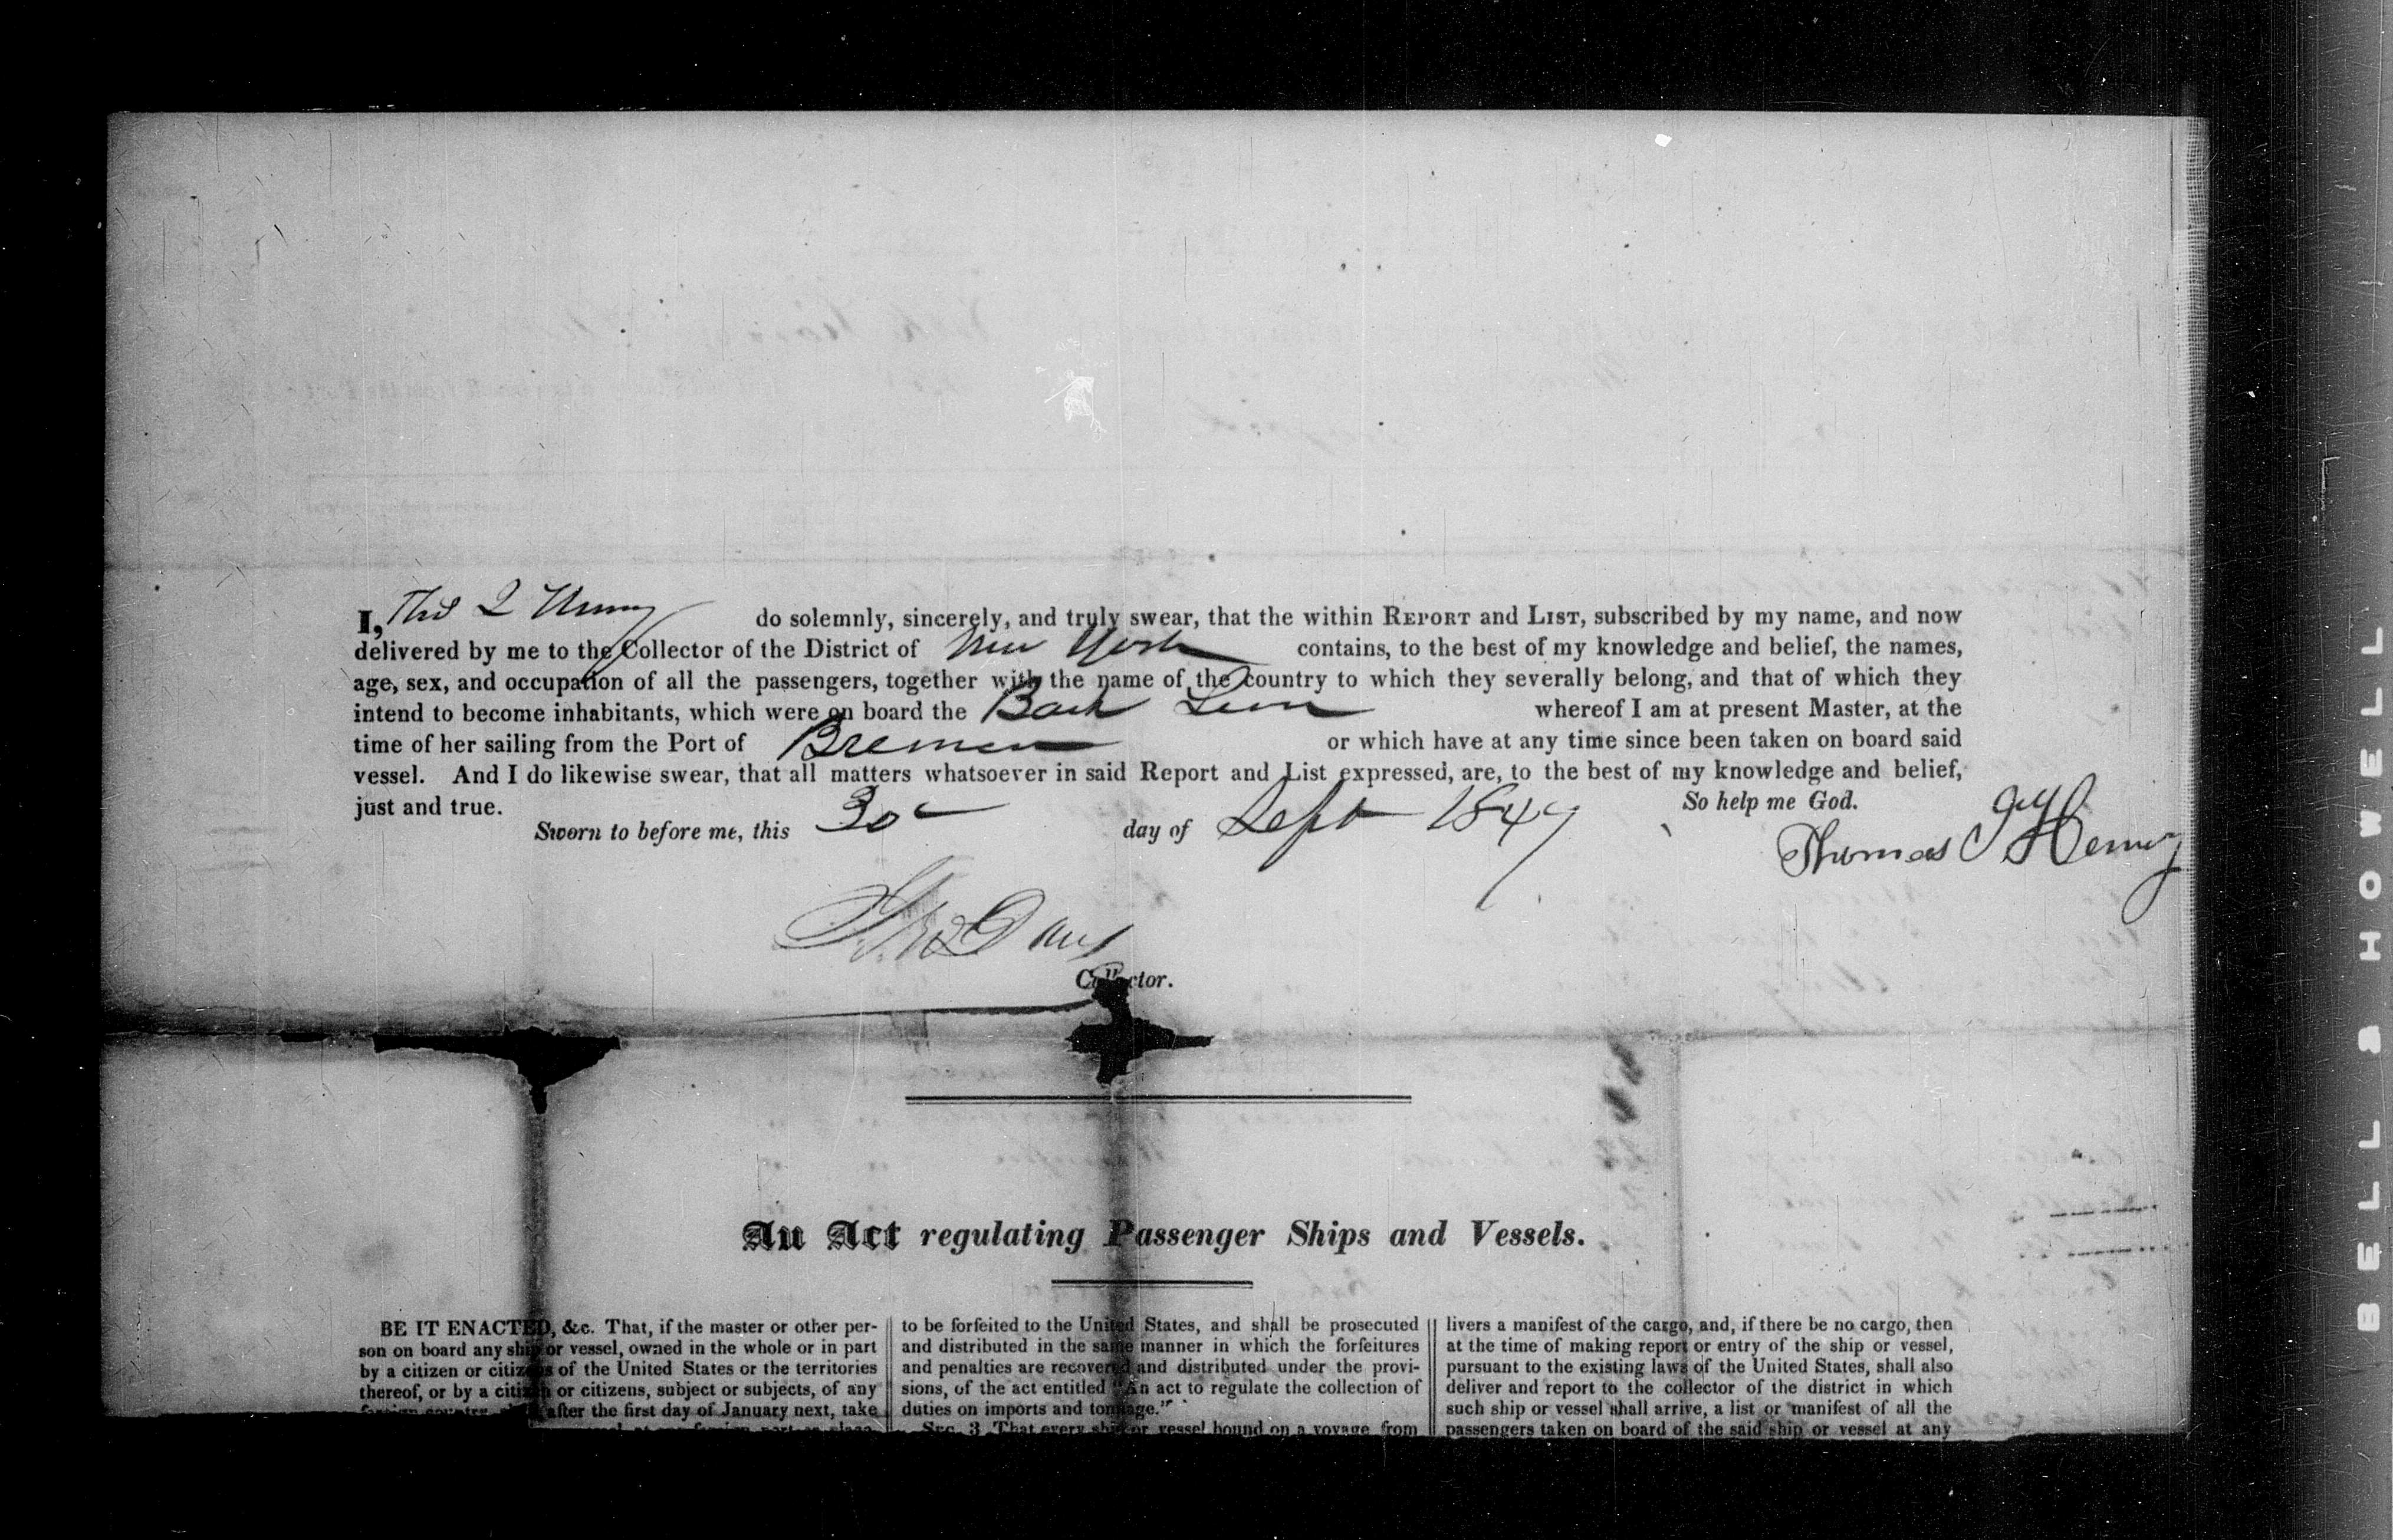 I, Thos do solemnly, sincerely, and truly swear, that the within REPORT and LIST, subscribed by my name, and now
delivered by me to the Collector of the District of New York contains, to the best of my knowledge and belief, the names,
age, sex, and occupation of all the passengers, together with the name of the country to which they severally belong, and that of which they
intend to become inhabitants, which were on board the Bark whereof I am at present Master, at the
time of her sailing from the Port of Bremen or which have at any time since been taken on board said
vessel. And I do likewise swear, that all matters whatsoever in said Report and List expressed, are, to the best of my knowledge and belief,
just and true. So help me God.
Sworn to before me, this 30 day of Sept 1847
Thomas Henry
Collector.
An Act regulating Passenger Ships and Vessels.
BE IT ENACTED, &c. That, if the master or other per-
son on board any ship or vessel, owned in the whole or in part
by a citizen or citizens of the United States or the territories
thereof, or by a citizen or citizens, subject or subjects, of any
foreign country, after the first day of January next, take
to be forfeited to the United States, and shall be prosecuted
and distributed in the same manner in which the forfeitures
and penalties are recovered and distributed under the provi-
sions, of the act entitled "An act to regulate the collection of
duties on imports and tonnage."
Sec. 3 That every ship or vessel bound on a voyage from
livers a manifest of the cargo, and, if there be no cargo, then
at the time of making report or entry of the ship or vessel,
pursuant to the existing laws of the United States, shall also
deliver and report to the collector of the district in which
such ship or vessel shall arrive, a list or manifest of all the
passengers taken on board of the said ship or vessel at any
BELL & HOWELL